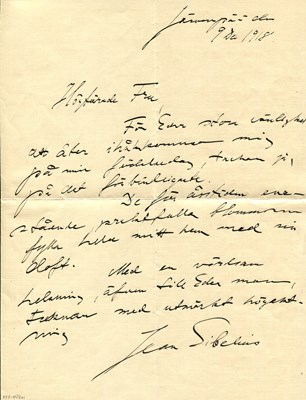 Järvenpää den
9 Dec 1918
Högtärade Fru
För Eder stora vänlighet
att åter ihågkomma mig
på min födelsedag, tackar jag
på det förbindligaste.
De för årstiden ena-
stående, praktfulla blommorna
fylla hela mitt hem med sin
doft.
Med en vördsam
helsning, äfven till Eder man,
tecknar med utmärkt högakt-
ning
Jean Sibelius